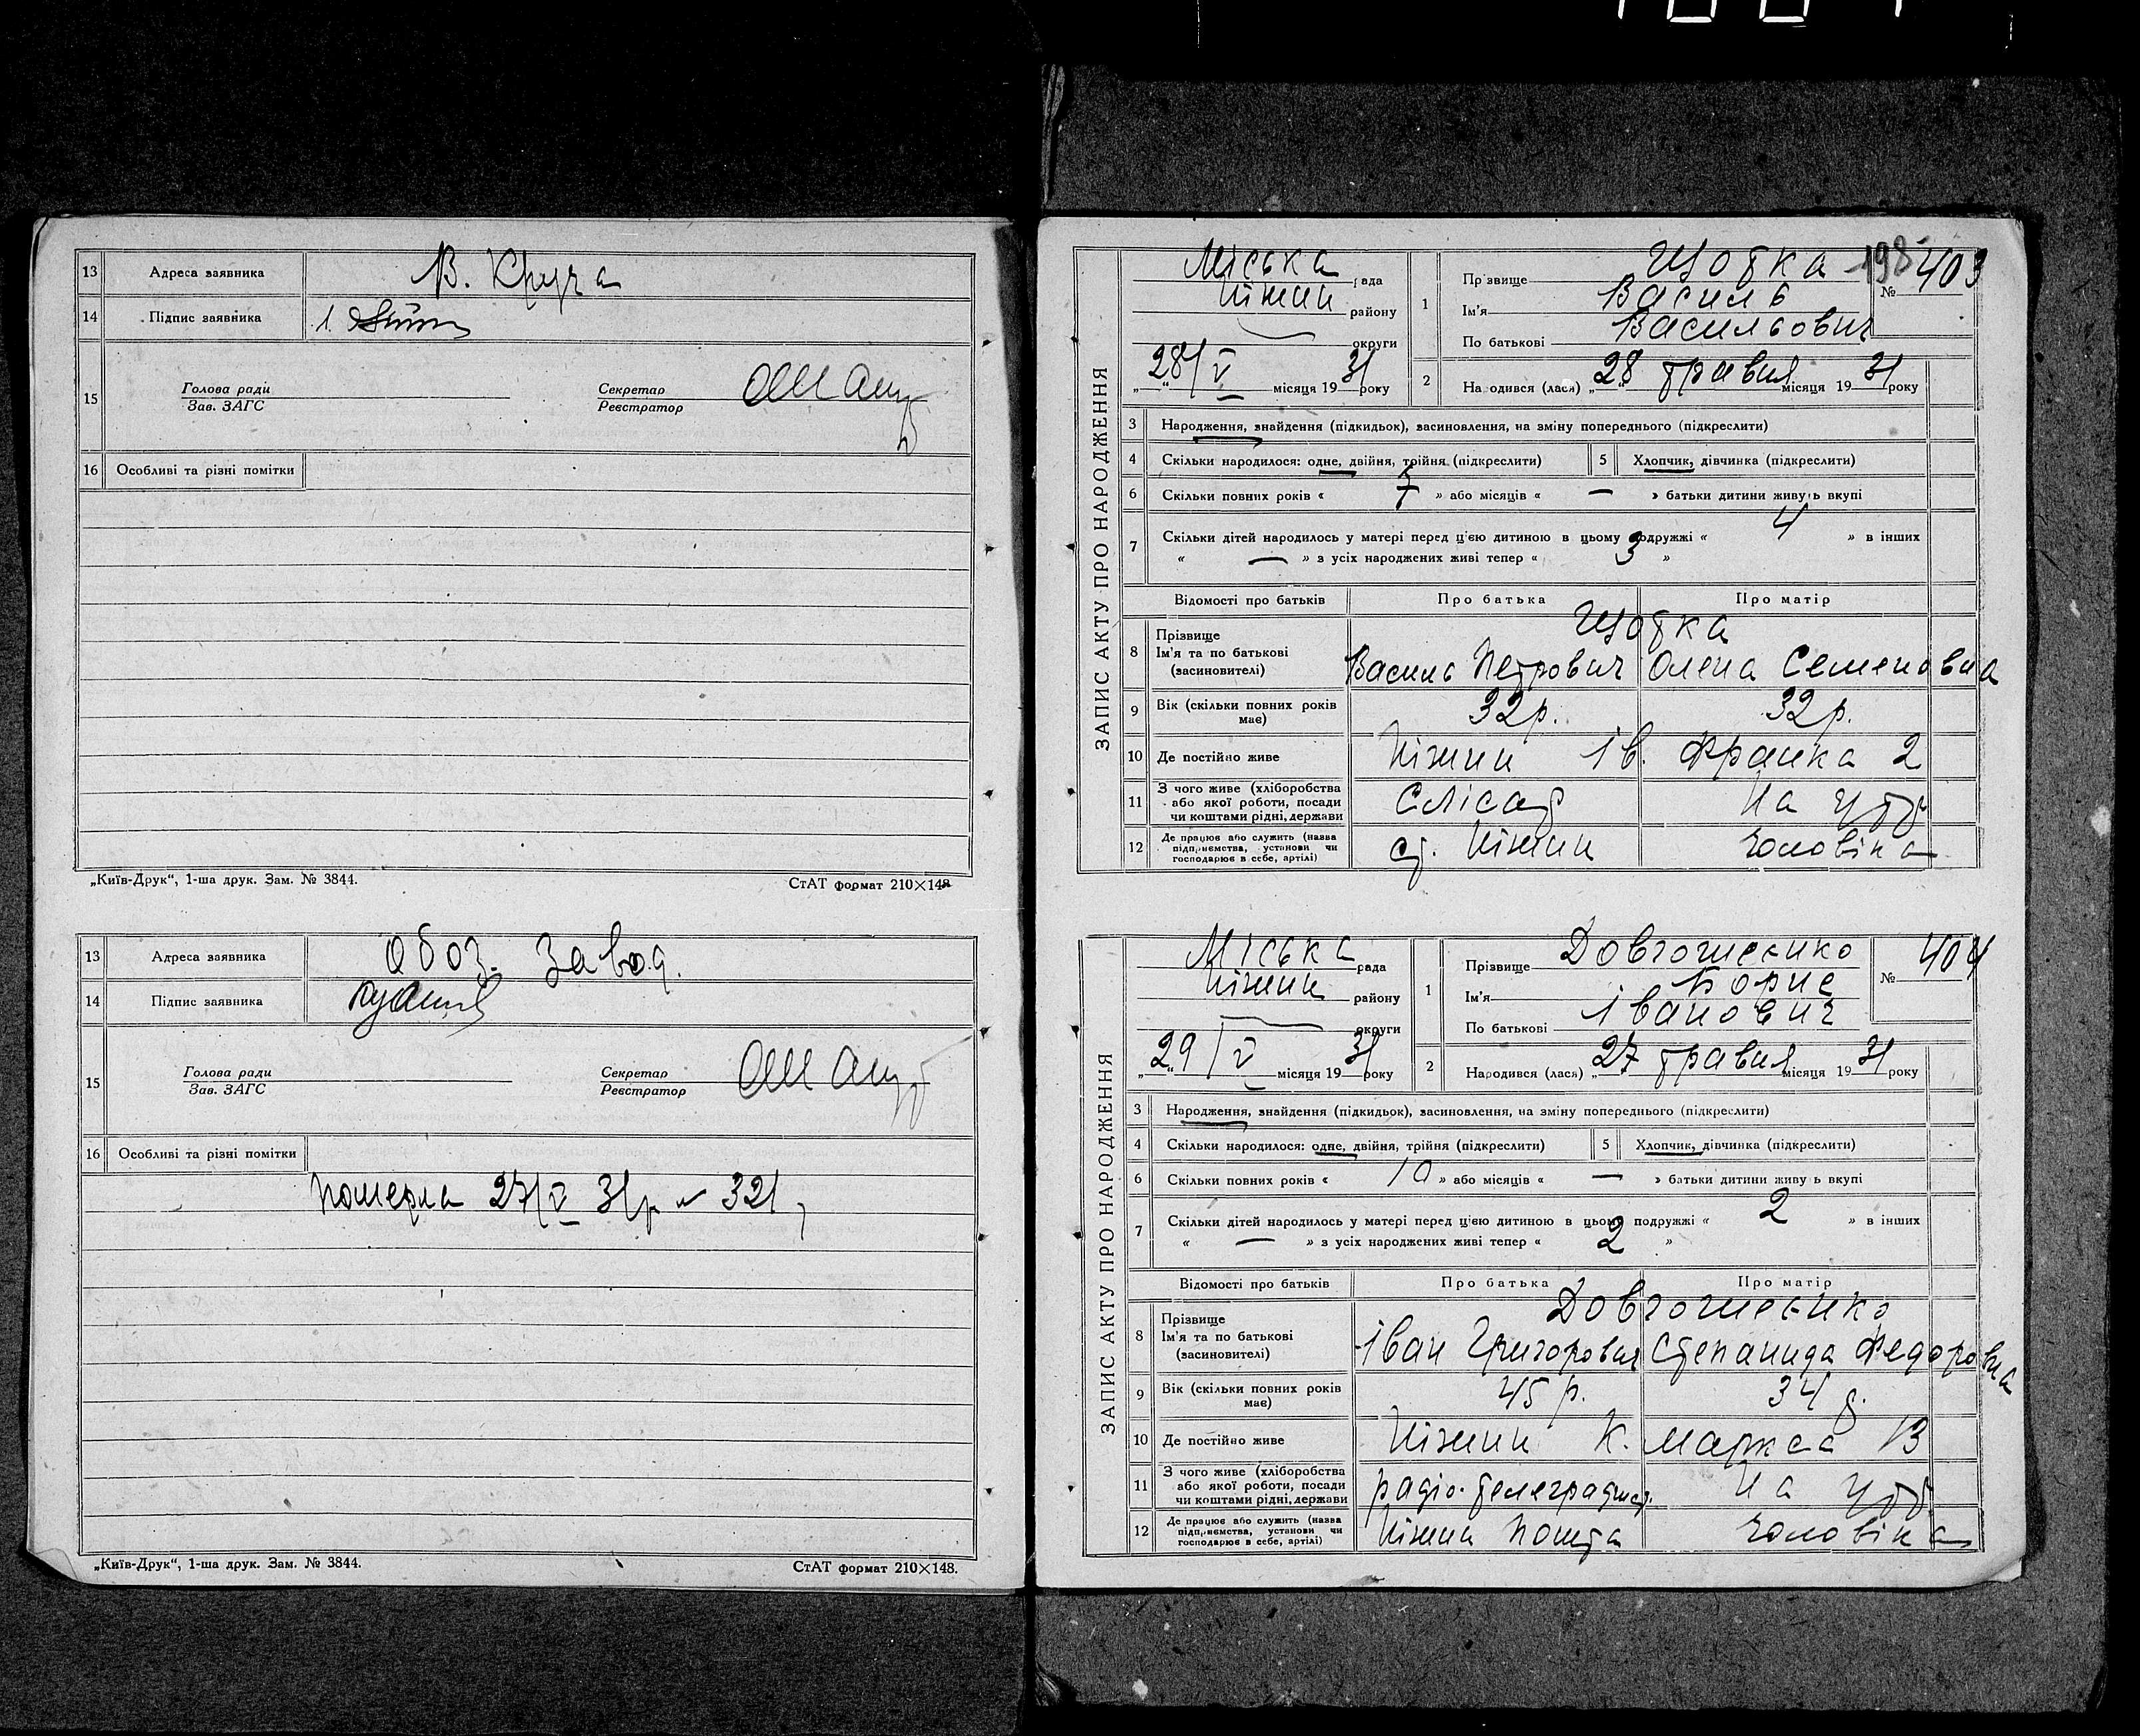 13 Адреса заявника В. Круча
14 Підпис заявника 1.
15 Голова ради Секретар
Зав. ЗАГС Реєстратор
16 Особливі та різні помітки
„Київ-Друк“, 1-ша друк. Зам. № 3844. СтАТ формат 210×148
13 Адреса заявника Обоз. Завод.
14 Підпис заявника
15 Голова ради Секретар
Зав. ЗАГС Реєстратор
16 Особливі та різні помітки
Померла 27/V 31 р № 321
„Київ-Друк“, 1-ша друк. Зам. № 3844. СтАТ формат 210×148.
ЗАПИС АКТУ ПРО НАРОДЖЕННЯ
198
Міська рада
Ніжин району
округи
„28/V місяця 1931 року
1 Прізвище Щотка № 403
Ім'я Василь
По батькові Васильович
2 Народився (лася) „28 травня місяця 1931 року
3 Народження, знайдення (підкидьок), засиновлення, на зміну попереднього (підкреслити)
4 Скільки народилося: одне, двійня, трійня (підкреслити) 5 Хлопчик, дівчинка (підкреслити)
6 Скільки повних років « » або місяців « — » батьки дитини живуть вкупі
7 Скільки дітей народилось у матері перед цією дитиною в цьому подружжі « 4 » в інших
« — » з усіх народжених живі тепер « 3 »
Відомості про батьків Про батька Про матір
8 Прізвище Щотка
Ім'я та по батькові Василь Петрович Олена Семеновна
(засиновителі)
9 Вік (скільки повних років має) 32 р. 32 р.
10 Де постійно живе Ніжин Ів. Франка 2
11 З чого живе (хліборобства Слісар На утр
або якої роботи, посади
чи коштами рідні, держави
12 Де працює або служить (назва ст. Ніжин чоловіка
підприємства, установи чи
господарює в себе, артілі)
ЗАПИС АКТУ ПРО НАРОДЖЕННЯ
Міська рада
Ніжин району
округи
„29/V місяця 1931 року
1 Прізвище № 404
Ім'я Борис
По батькові Іванович
2 Народився (лася) „27 травня місяця 1931 року
3 Народження, знайдення (підкидьок), засиновлення, на зміну попереднього (підкреслити)
4 Скільки народилося: одне, двійня, трійня (підкреслити) 5 Хлопчик, дівчинка (підкреслити)
6 Скільки повних років « 10 » або місяців « — » батьки дитини живуть вкупі
7 Скільки дітей народилось у матері перед цією дитиною в цьому подружжі « 2 » в інших
« — » з усіх народжених живі тепер « 2 »
Відомості про батьків Про батька Про матір
8 Прізвище
Ім'я та по батькові Іван Григорович Степанида Федоровна
(засиновителі)
9 Вік (скільки повних років має) 45 р. 34 р.
10 Де постійно живе Ніжин К. Маркса 13
11 З чого живе (хліборобства радіо-телеграфист. На утр
або якої роботи, посади
чи коштами рідні, держави
12 Де працює або служить (назва Ніжин Пошта чоловіка
підприємства, установи чи
господарює в себе, артілі)